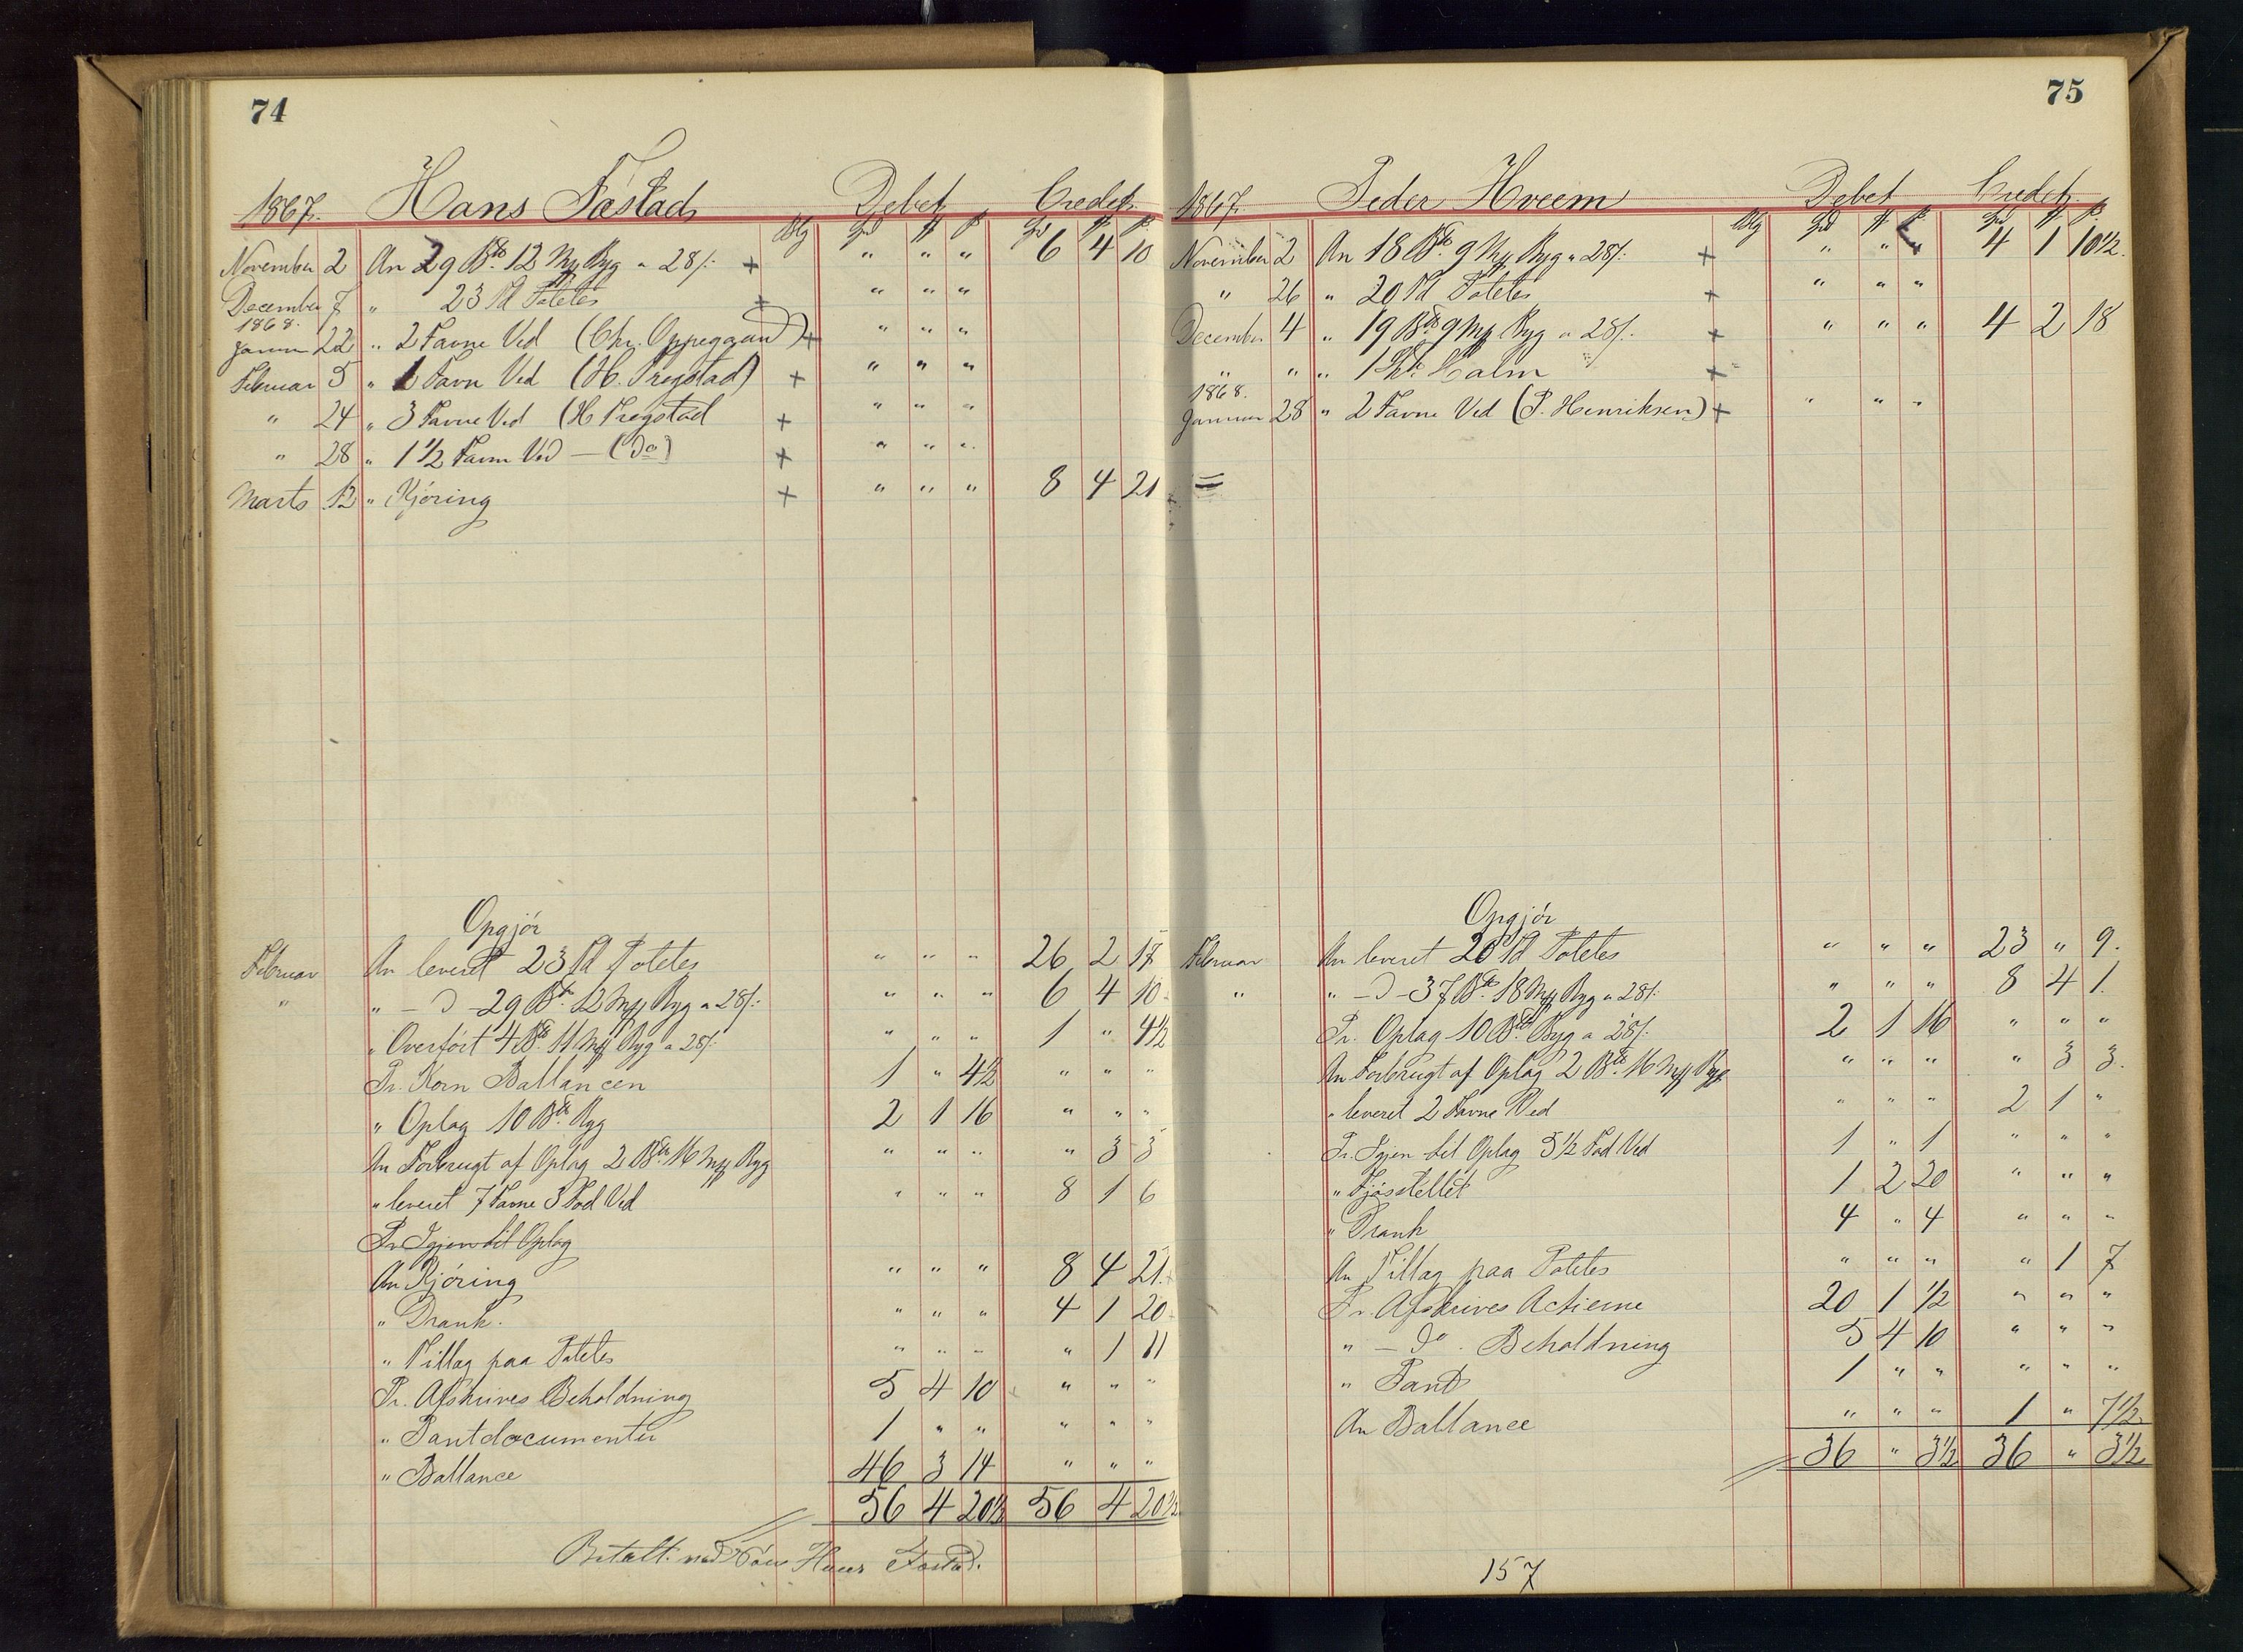 74
1867. Hans Fostad Debet Credit
Spd # ß Spd # ß
November 2 An 29 Btr. 12 Mg Byg a 28/: + " " " 6 4 10
December 7 " 23 Td Potetes + " " "
1868.
Januar 22 " 2 Favne Ved (Chr. Oppegaard) + " " "
Februar 5 " 1 Favn Ved (H. Tregstad) + " " "
" 24 " 3 Favne Ved (H Tregstad + " " "
" 28 " 1 1/2 Favn Ved — (Do) + " " "
Marts 12 " Kjöring + " " " 8 4 21
Opgjör
Februar An leveret 23 Td Potetes " " " 26 2 17
" " - D - 29 Btr. 12 Mg Byg a 28/: " " " 6 4 10
" Overført 4 Btr. 11 Mg Byg a 28/: " " " 1 " 4 1/2
Pr. Korn Ballancen 1 " 4 1/2 " " "
" Oplag 10 Btr Byg 2 1 16 " " "
An Forbrugt af Oplag 2 Btr. 16 Mg Byg " " " " 3 3
" leveret 7 Favne 3 Fod Ved " " " 8 1 6
Pr. Igjen til Oplag
An Kjöring " " " 8 4 21
" Drank. " " " 4 1 20
" Tillag paa Potetes " " " " 1 11
Pr. Afskrives Beholdning 5 4 10 " " "
" Pantdocumenter 1 " " " " "
" Ballance 46 3 14 " " "
56 4 20 1/2 56 4 20 1/2
Betalt Hans Fostad.
75
1867. Peder Hveem Debet Credit
Spd # ß Spd # ß
November 2 An 18 Btr. 9 Mg Byg a 28/: + " " " 4 1 10 1/2
" 26 " 20 Td Potetes + " " "
December 4 " 19 Btr. 9 Mg Byg a 28/: + " " " 4 2 18
" " " 1 Halm +
1868.
Januar 28 " 2 Favne Ved (P. Henriksen) + " " "
Opgjör
Februar An leveret 20 Td Potetes " " " 23 " 9
" " - D - 37 Btr. 18 Mg Byg a 28/: " " " 8 4 1
Pr. Oplag 10 Btr. Byg a 28/: 2 1 16 " " "
An Forbrugt af Oplag 2 Btr. 16 Mg Byg " " " " 3 3
" leveret 2 Favne Ved " " " 2 1 "
Pr. Igjen til Oplag 5 1/2 Fod Ved 1 " 1 " " "
" Fjösstellet 1 2 20 " " "
" Drank 4 " 4 " " "
An Tillag paa Potetes " " " " 1 7
Pr. Afskrives Actierne 20 1 1/2 " " "
" - Do. Beholdning 5 4 10 " " "
" Pant 1 " " " " "
An Ballance " " " 1 " 7 1/2
36 " 3 1/2 36 " 3 1/2
157